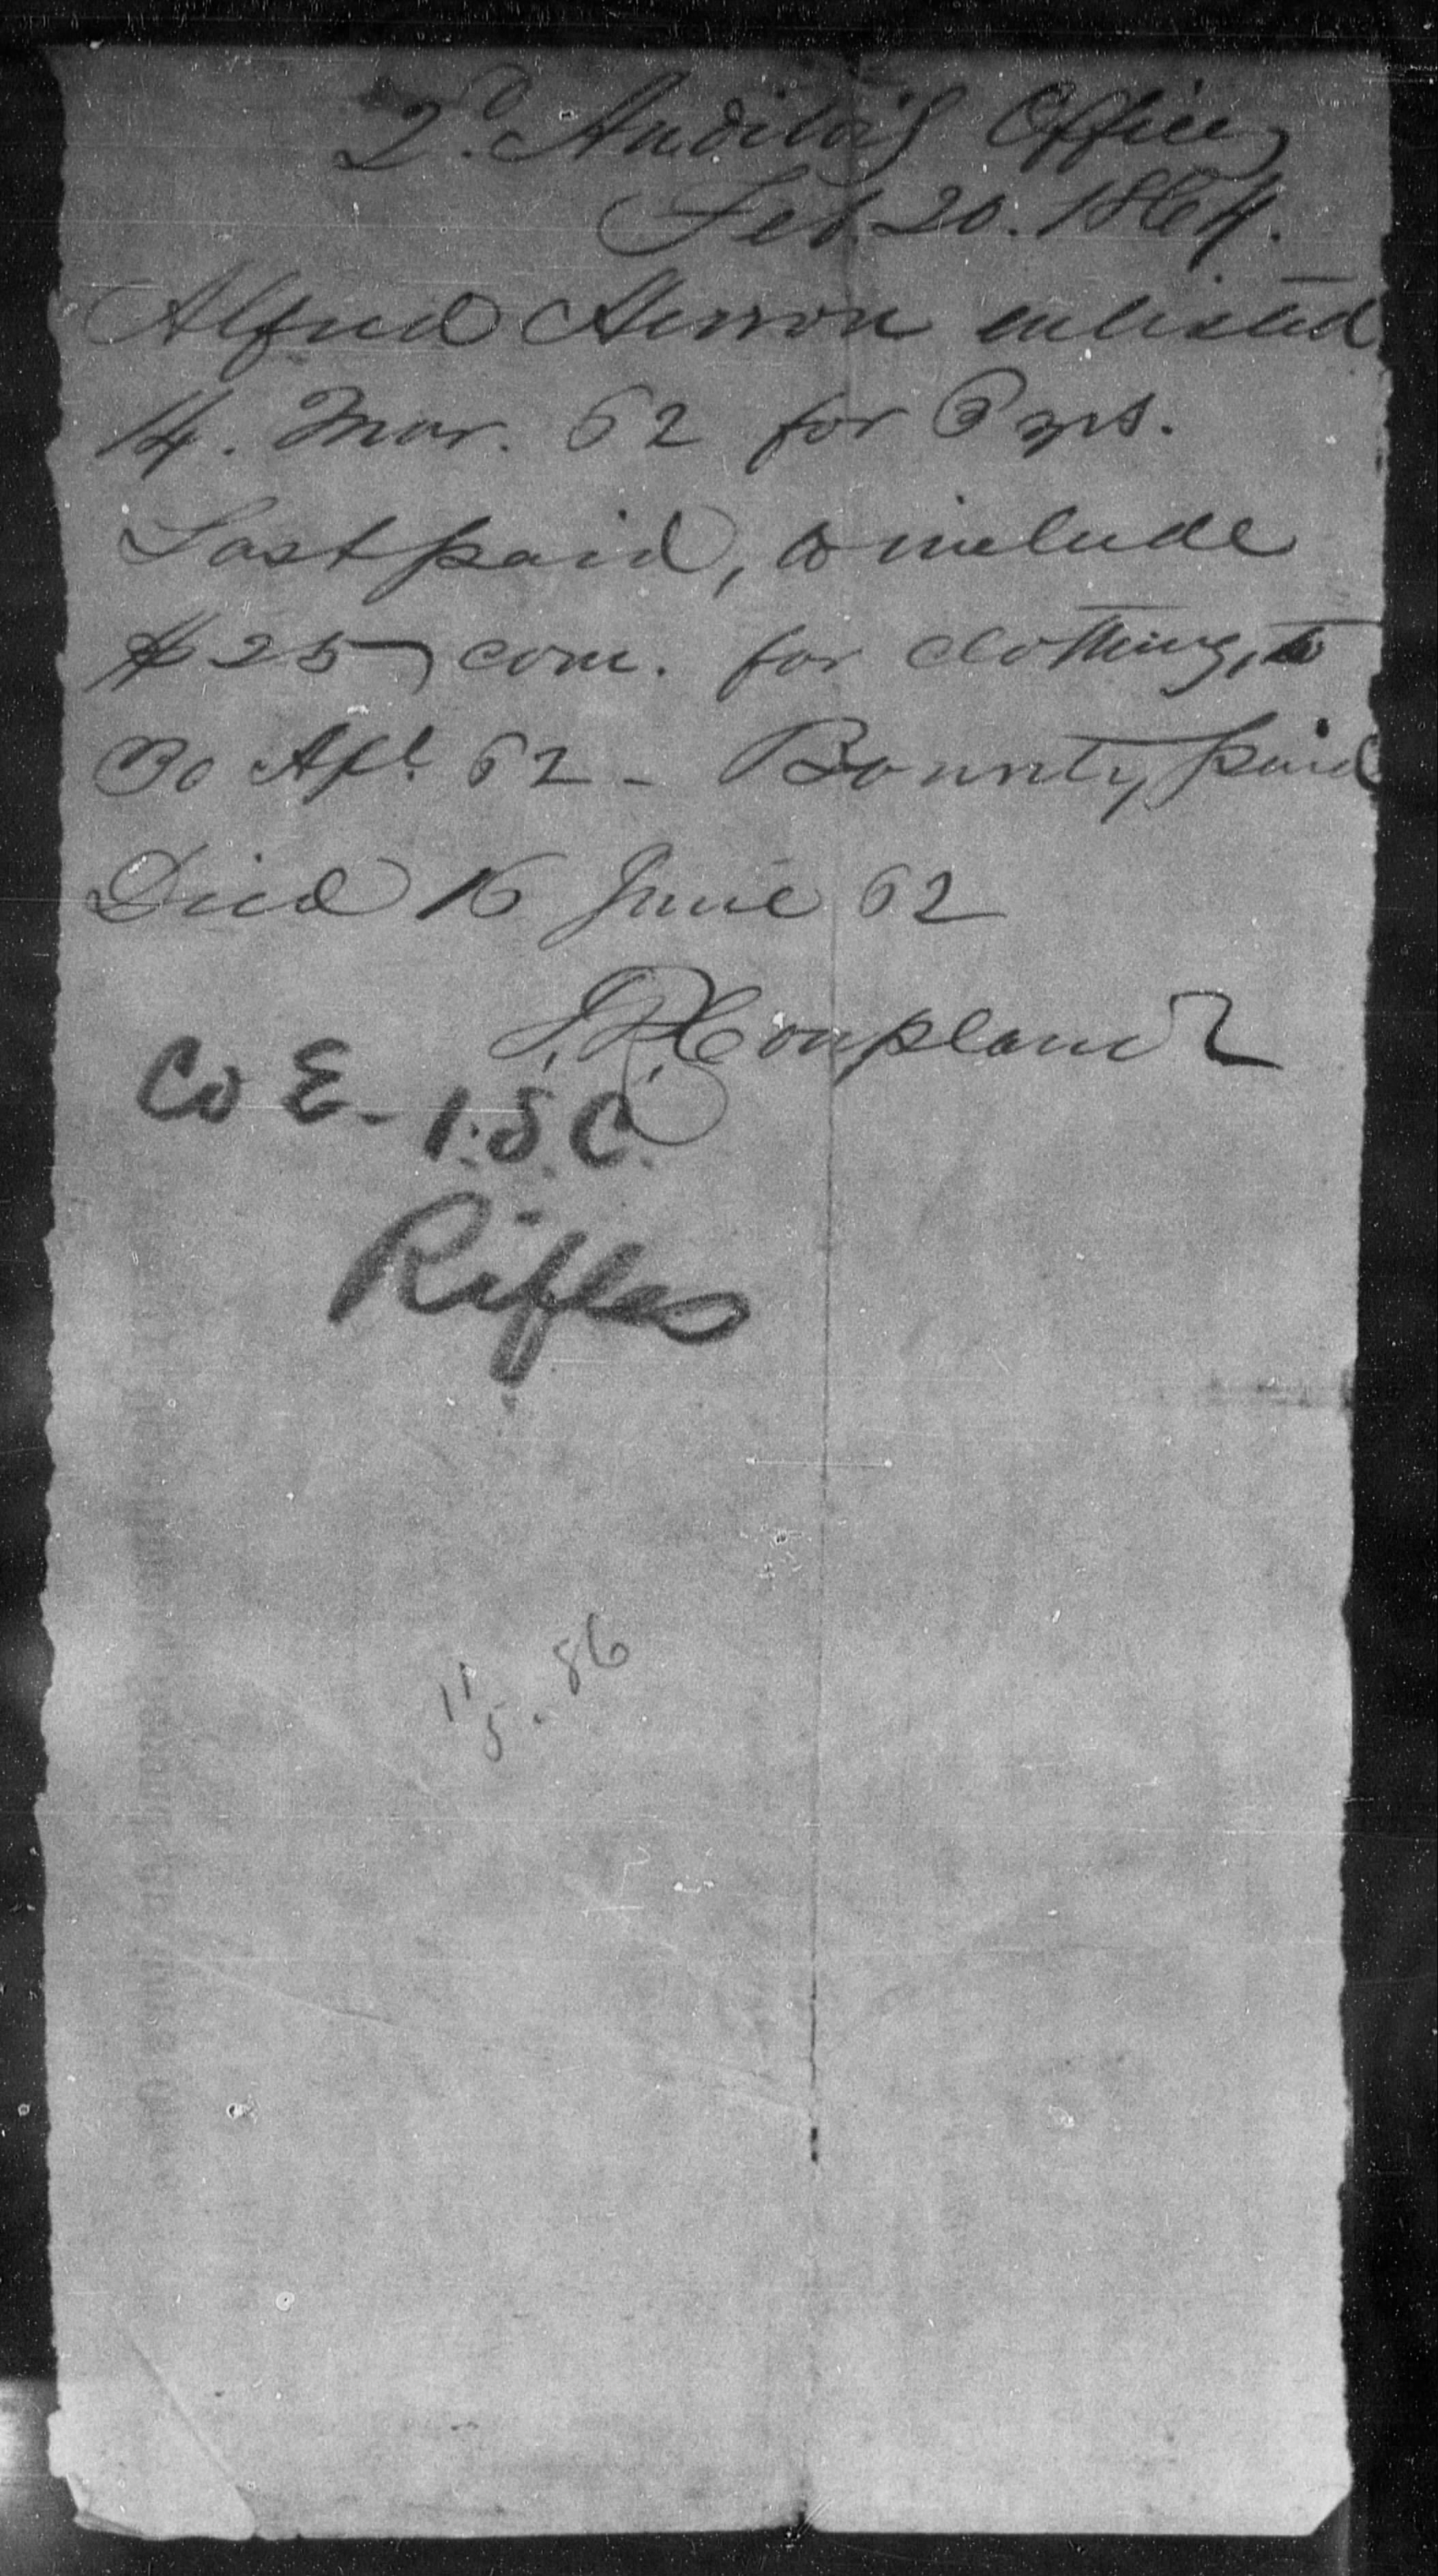 2d. Auditor's Office
Feb 20. 1864.
Alfred Herron enlisted
14. Mar. 62 for 3 yrs.
Last paid, to include
$25 com. for clothing, to
30 Apl. 62 - Bounty paid
Died 16 June 62
J. R. Coupland
Co E - 1. S. C.
Rifles
11/5. 86